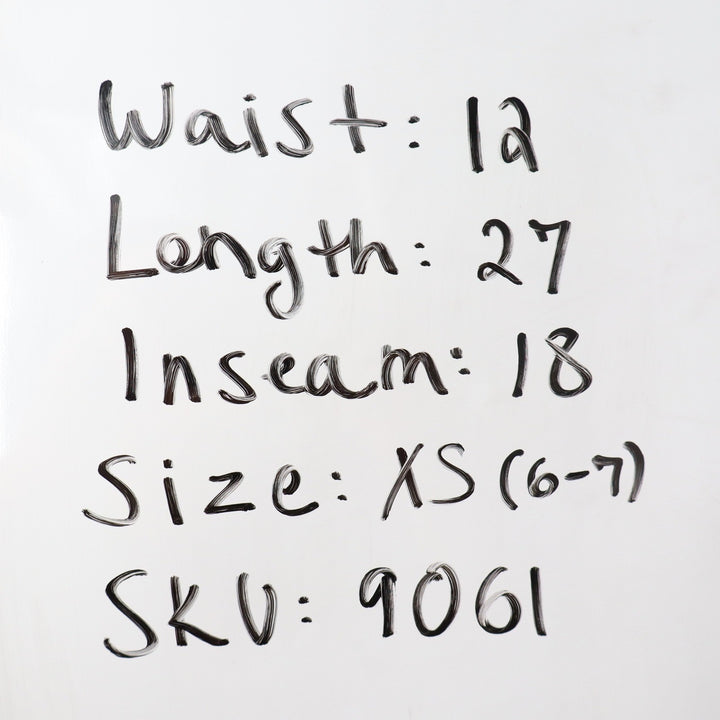 Waist: 12
Length: 27
Inseam: 18
Size: XS (6-7)
SKU: 9061